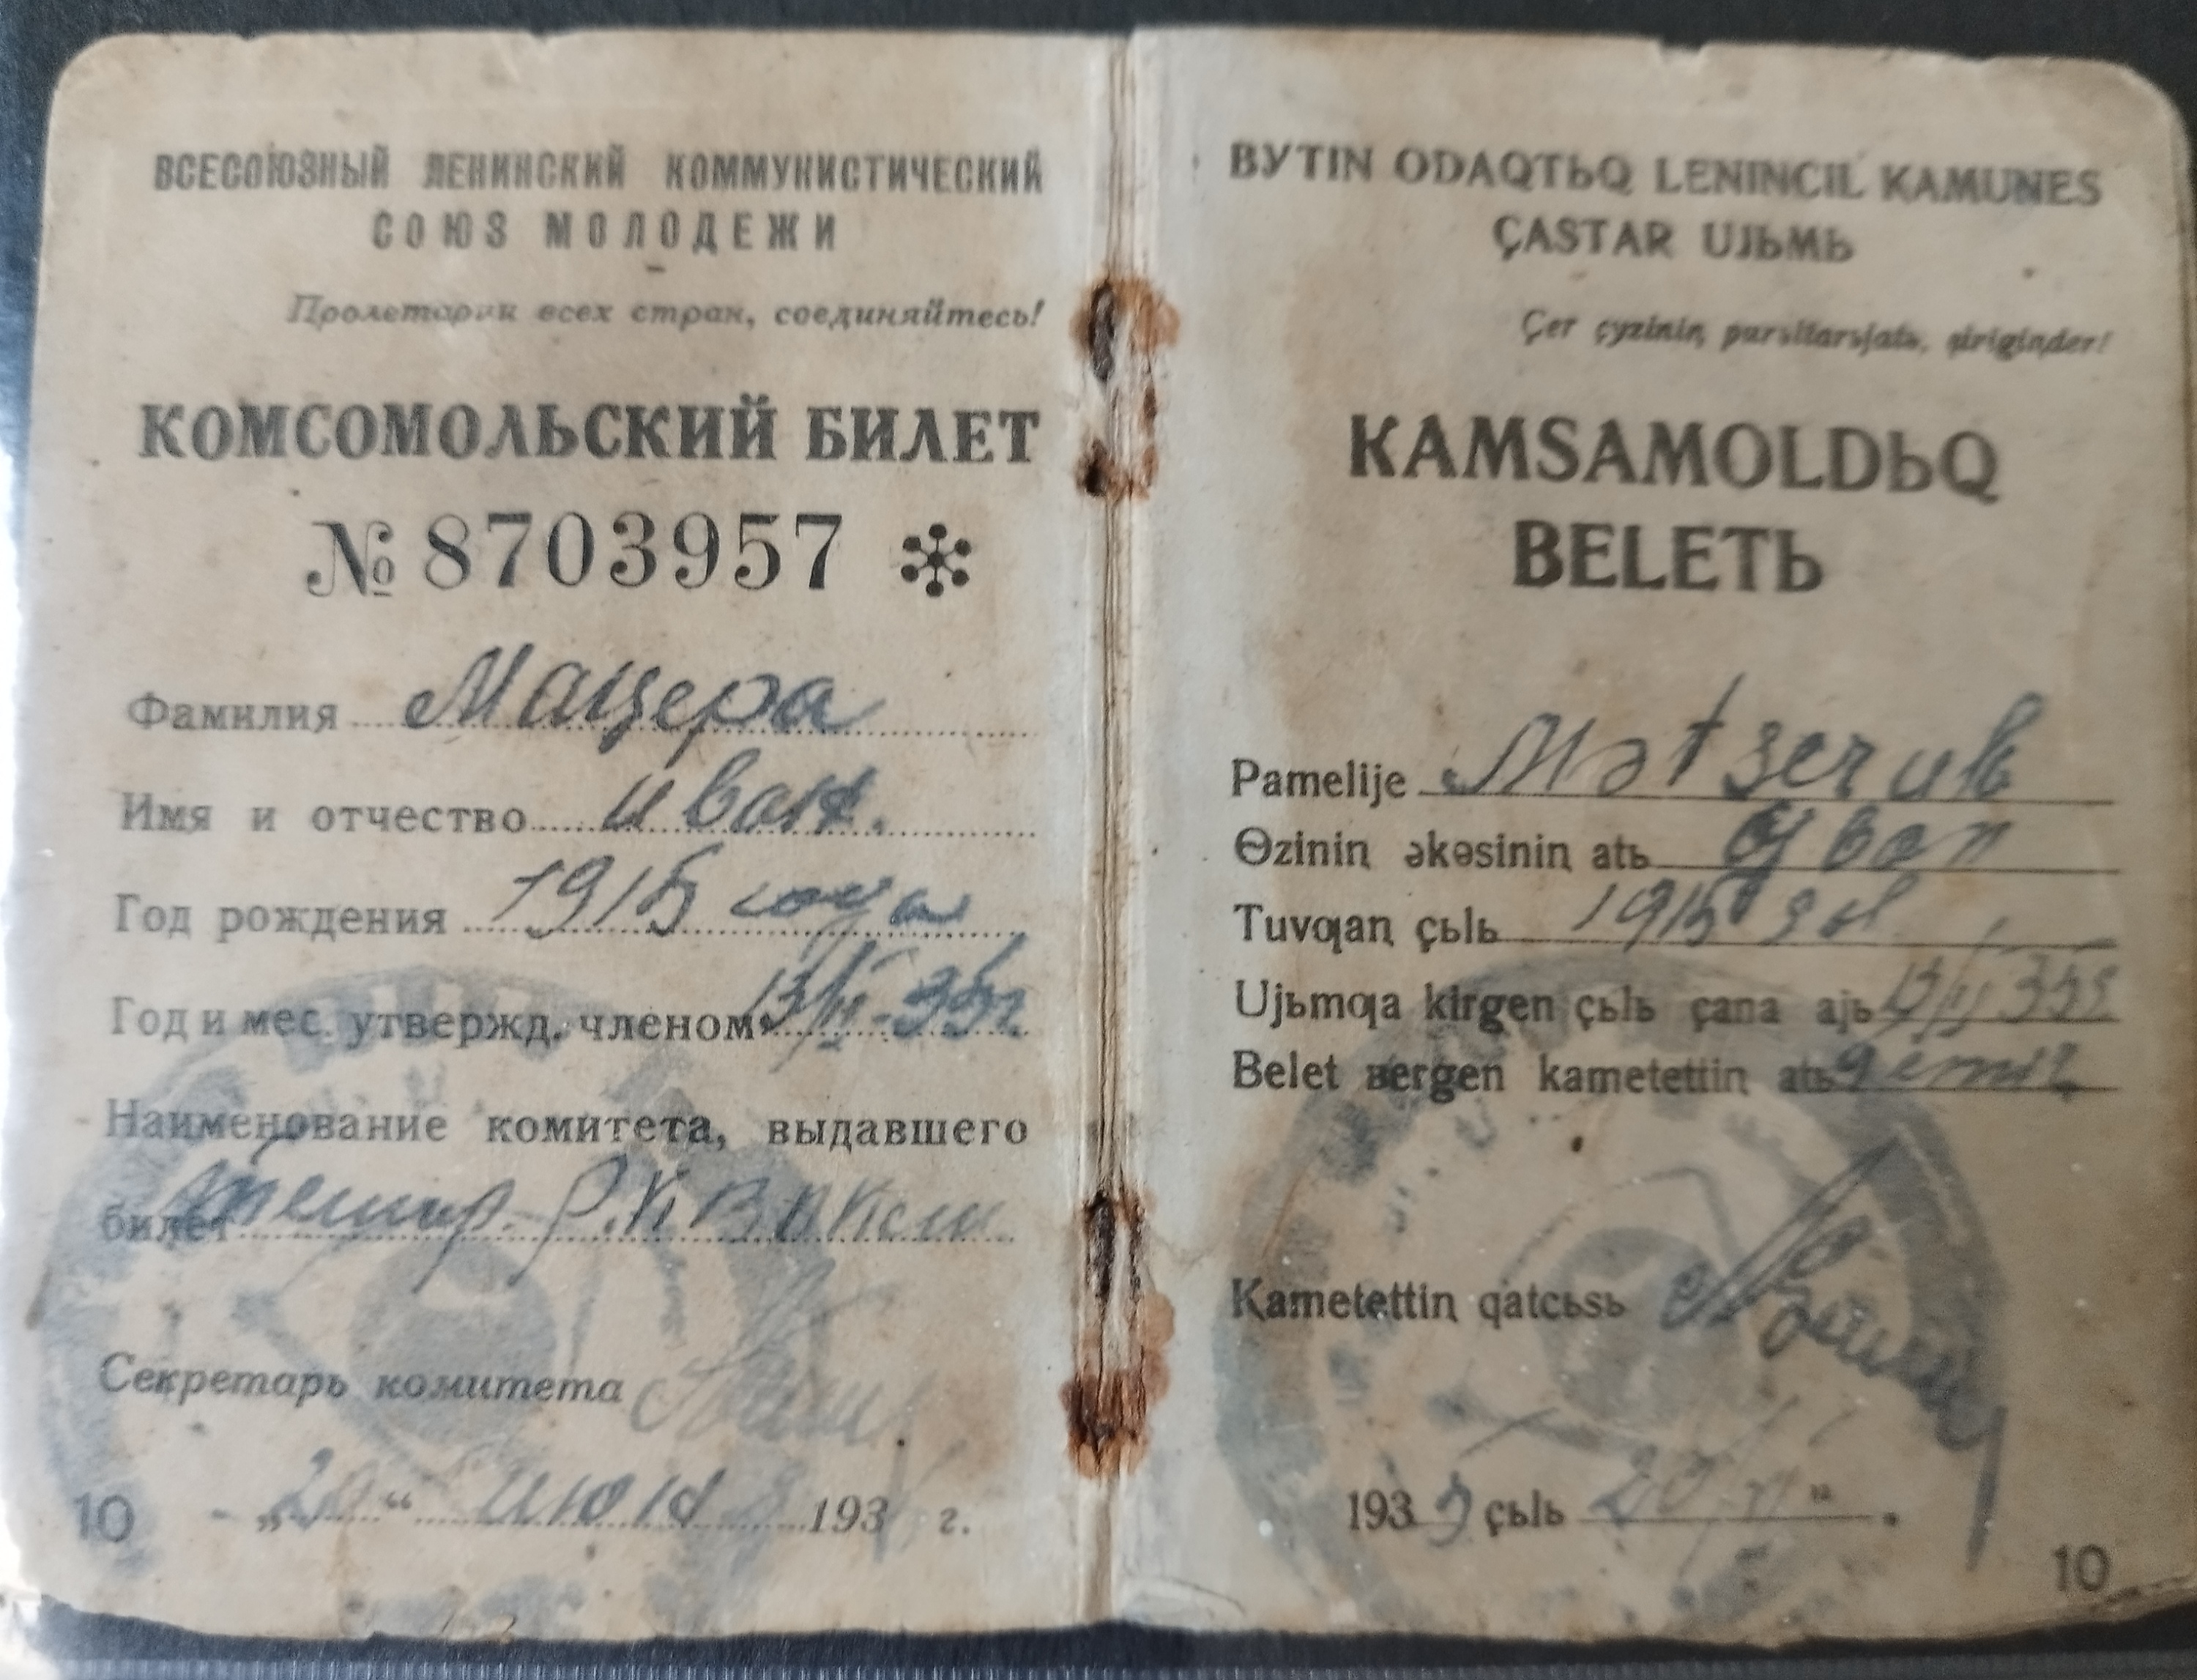 ВСЕСОЮЗНЫЙ ЛЕНИНСКИЙ КОММУНИСТИЧЕСКИЙ
СОЮЗ МОЛОДЕЖИ
Пролетарии всех стран, соединяйтесь!
КОМСОМОЛЬСКИЙ БИЛЕТ
№ 8703957
Фамилия Мацера
Имя и отчество Иван.
Год рождения 1915 года
Год и мес. утвержд. членом 13/II-35г
Наименование комитета, выдавшего
билет Р.К ВЛКСМ
Секретарь комитета
„20“ июня 193 г.
10
BYTIN ODAQTЬQ LENINCIL KAMUNES
ÇASTAR UJЬMЬ
Çer çyzinin̡ purəltarьjatь, ʙirigin̡der!
KAMSAMOLDЬQ
BELETЬ
Pamelije
Өzinin̡ əkəsinin̡ atь Yban
Tuvƣan̡ çьlь 1915
Ujьmƣa kirgen çьlь çana ajь 13/II 35
Belet ʙergen kametettin̡ atь
Kametettin̡ qatcьsь
1939 çьlь 20
10